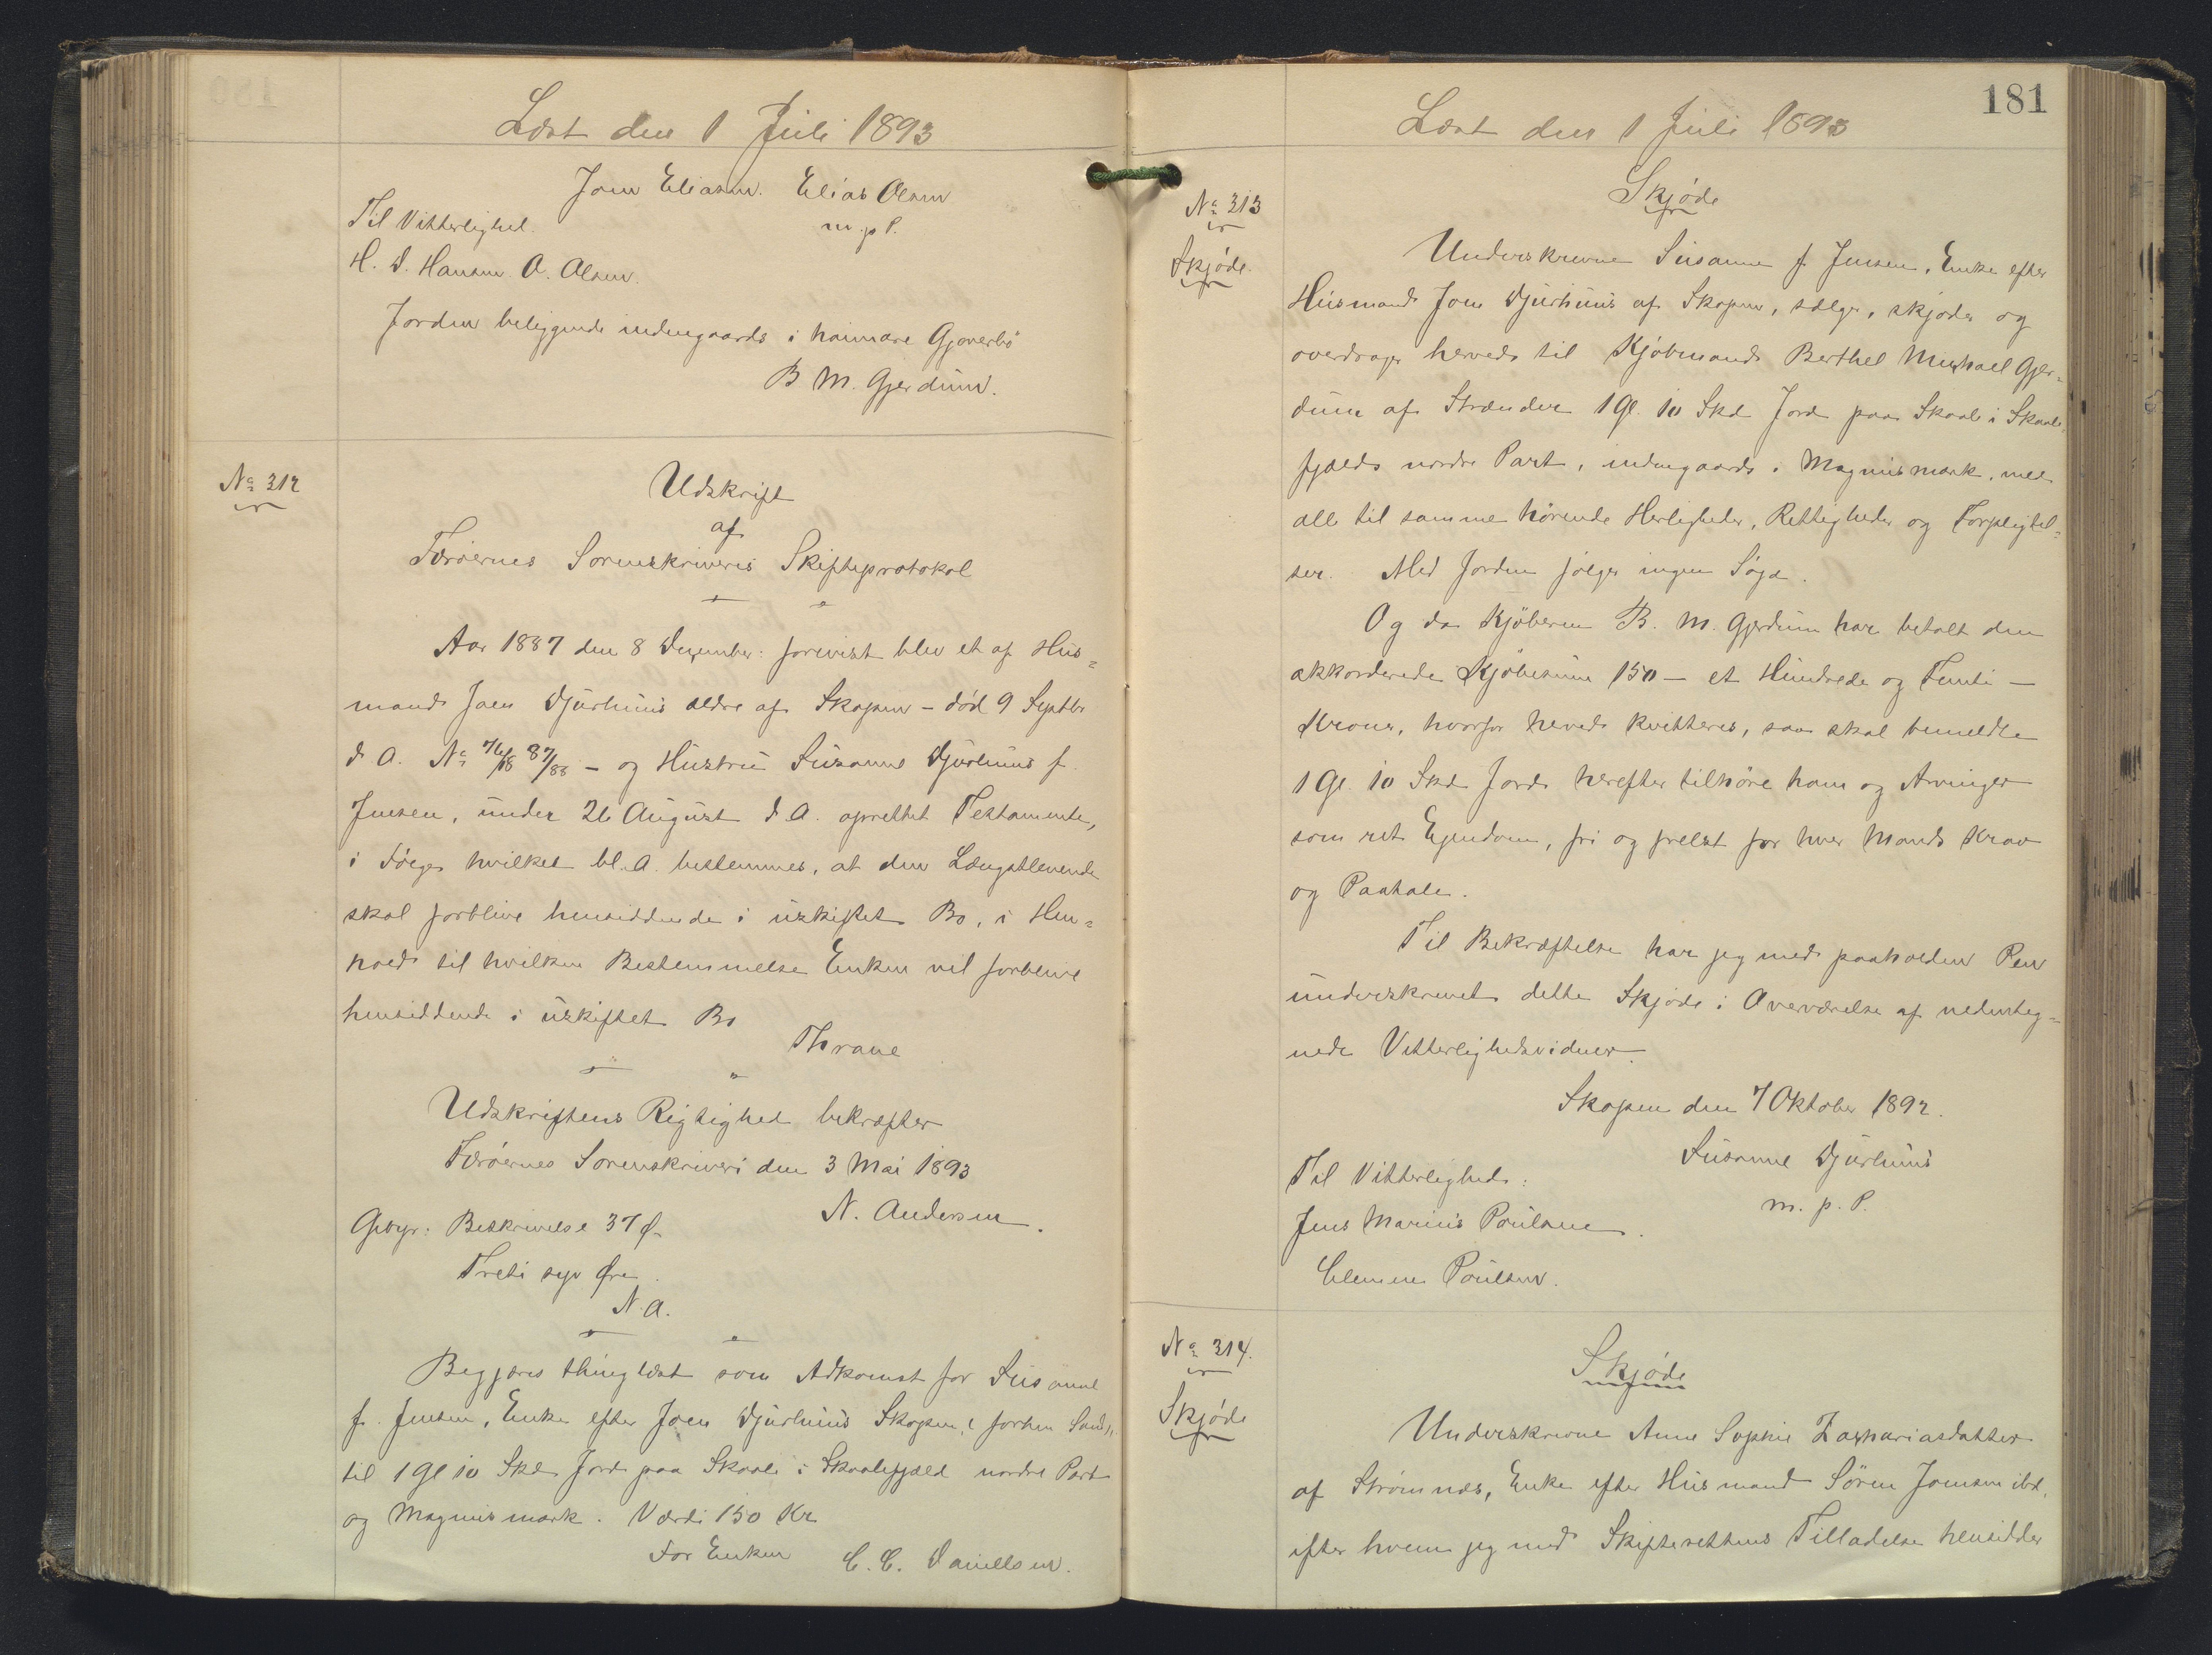 Læst den 1 Juli 1893
Joen Eliasen. Elias Olsen
Til Vitterlighed. m. p. P.
H. D. Hansen. O. Olsen.
Jorden beliggende indengaards i haimare Gjoverbö
B M. Gjerdum.
No 312
Udskrift
af
Færöernes Sorenskriveris Skifteprotokol
Aar 1887 den 8 Dezember: forevist blev et af Hus=
mand Joen Djurhuus ældre af Skopen – död 9 Septbr
d. A. No 76/18 87/88 – og Hustru Susanne Djurhuus f.
Jensen, under 26 August d. A. oprettet Testamente,
i Fölge hvilket bl. A. bestemmes, at den Længstlevende
skal forblive hensiddende i uskiftet Bo, i Hen=
hold til hvilken Bestemmelse Enken vil forblive
hensiddende i uskiftet Bo
Thrane
Udskriftens Rigtighed bekræfter
Færöernes Sorenskriveri den 3 Mai 1893
N. Andersen.
Gebyr: Beskrivelse 37 Ø.
Treti syv Øre.
N. A.
Begjæres thinglæst som Adkomst for Susanne
f. Jensen, Enke efter Joen Djurhuus Skopen, (forhen Sand),
til 1 Gl 10 Skd Jord paa Skaale i Skaalefjeld nordre Part
og Magnusmark. Værdi 150 Kr
For Enken C. C. Danielsen.
181
Læst den 1 Juli 1893
No 313
Skjöde
Skjöde
Underskrevne Susanne f. Jensen, Enke efter
Husmand Joen Djurhuus af Skopen, sælger, skjøder og
overdrager herved til Kjöbmand Berthel Michael Gjer=
dum af Strænder 1 Gl. 10 Skd Jord paa Skaale i Skaale=
fjælds nordre Part, indengaards i Magnusmark, med
alle til samme hörende Herligheder, Rettigheder og Forpligtel=
ser. Med Jorden fölger ingen Söyd.
Og da Kjöberen B. M. Gjerdum har betalt den
akkorderede Kjöbesum 150 – et Hundrede og Femti –
Kroner, hvorfor herved kvitteres, saa skal bemeldte
1 Gl. 10 Skd Jord herefter tilhöre ham og Arvinger
som ret Ejendom, fri og frelst for hver Mands Krav
og Paatale.
Til Bekræftelse har jeg med paaholden Pen
underskrevet dette Skjöde i Overværelse af undertegn=
nede Vitterlighedsvidner.
Skopen den 7 Oktober 1892.
Susanne Djurhuus
Til Vitterlighed:
m. p. P.
Jens Marius Poulsen.
Clemen Poulsen.
No 314.
Skjöde
Skjöde
Underskrevne Anne Sophie Zachariasdatter
af Strömnæs, Enke efter Husmand Sören Joensen ibd.
efter hvem jeg med Skifterettens Tilladelse hensidder